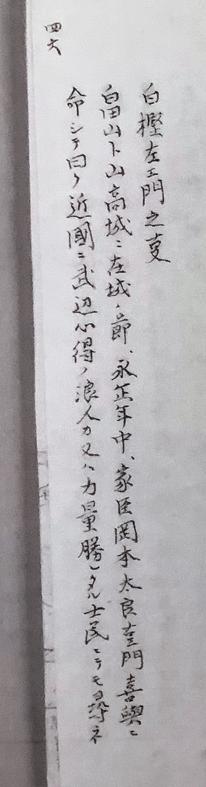 白樫左エ門之叓
畠山卜山高城ニ在城ノ節、永正年中、家臣岡本太良左門喜與ニ
命シテ曰ク近國ニ武辺心得ノ浪人カ又ハ力量勝レタル士民ニテモ尋ネ
四六